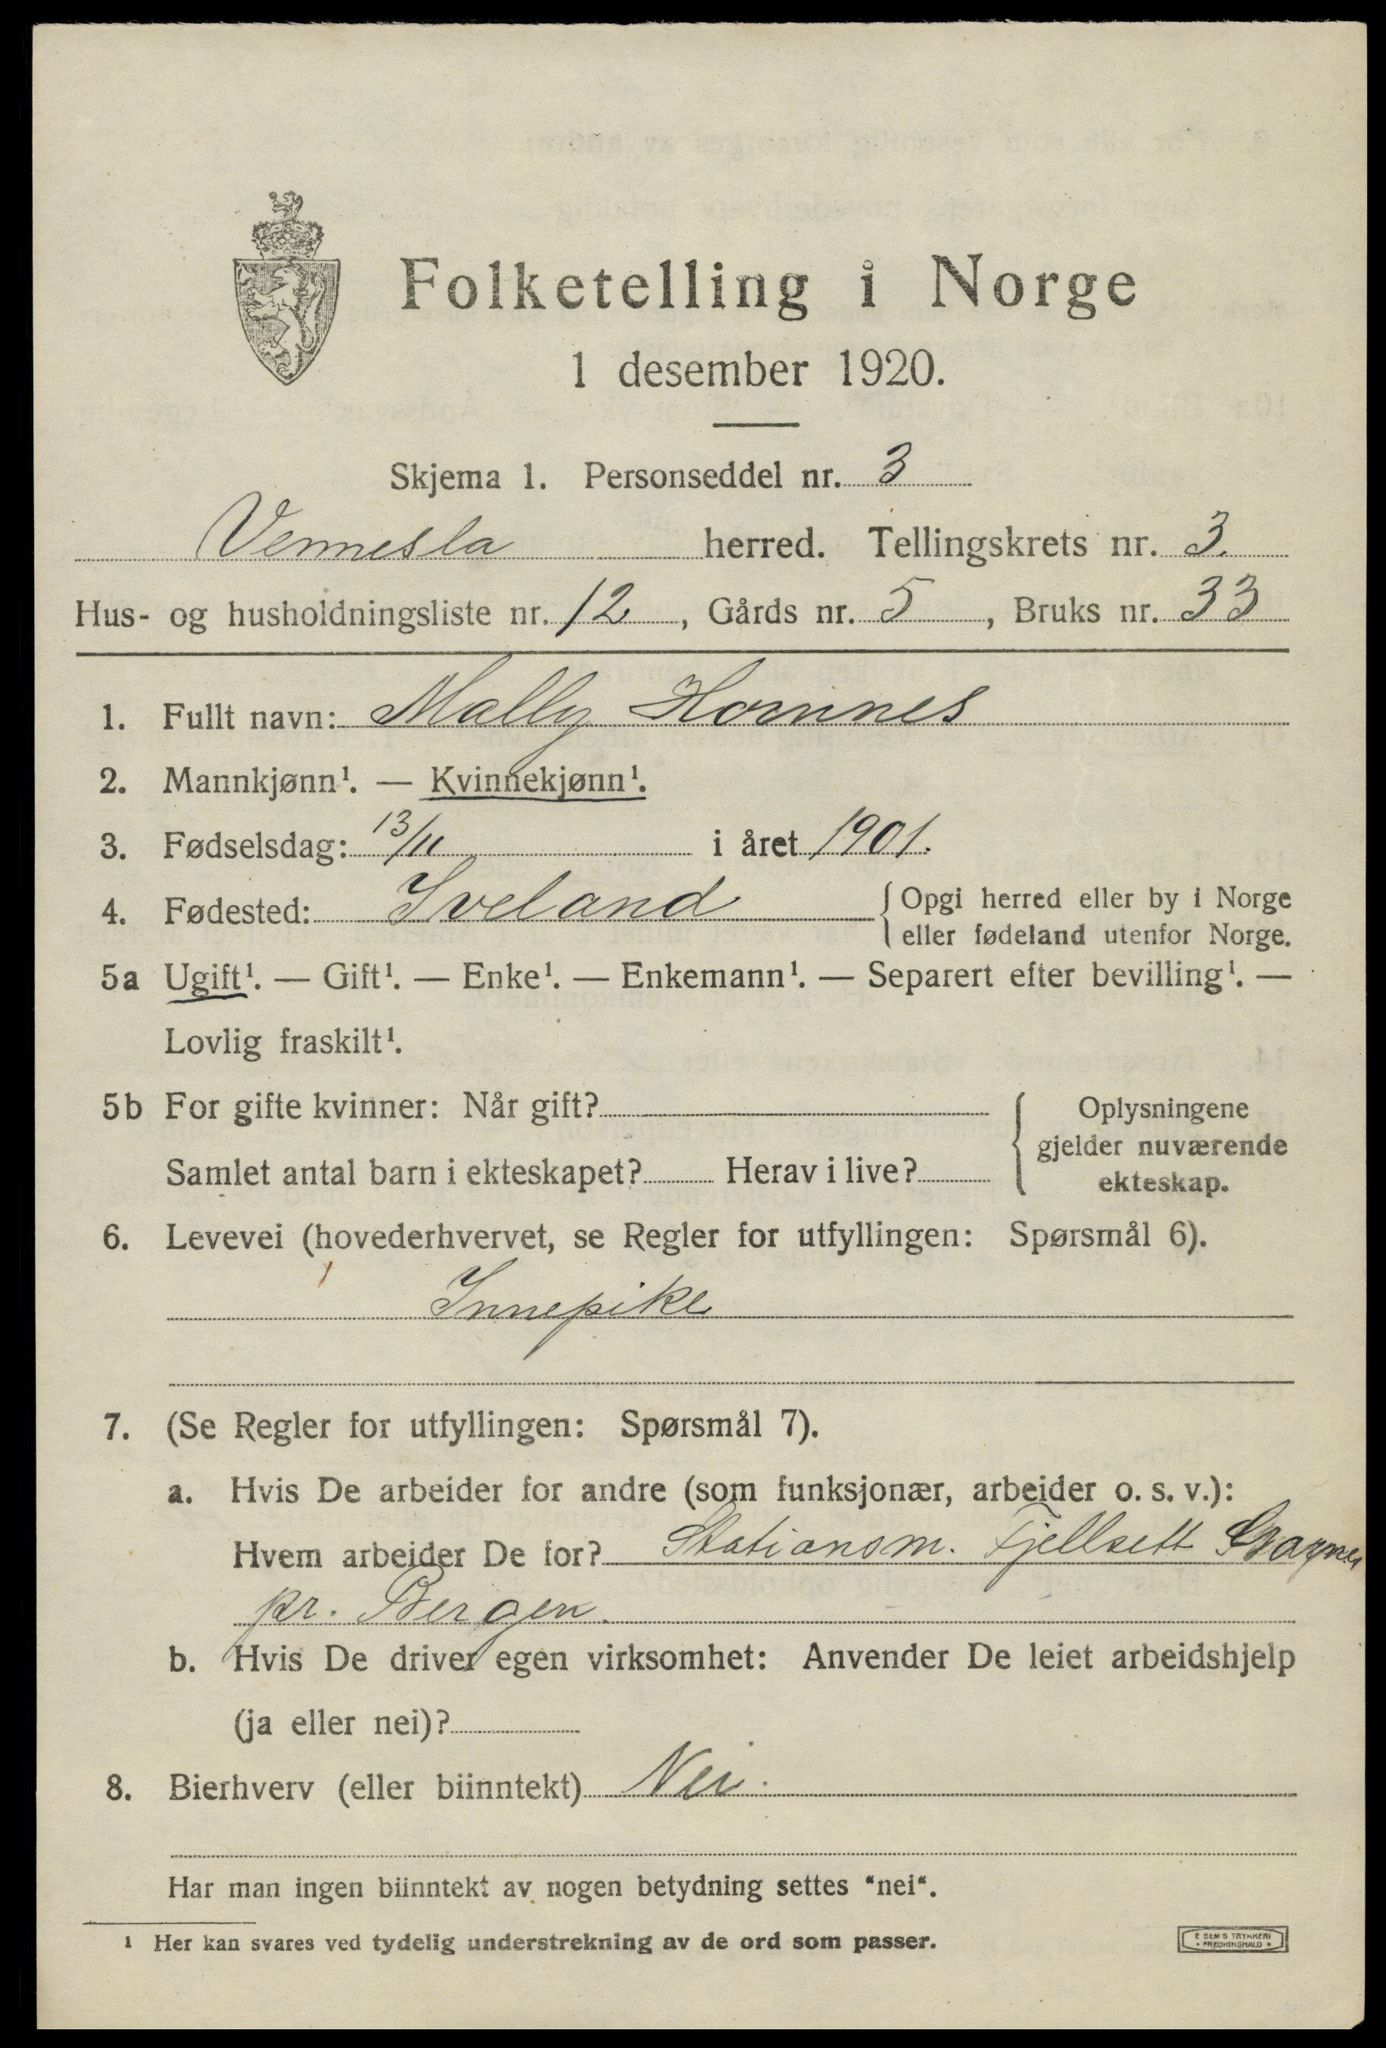 Folketelling i Norge
1 desember 1920.
Skjema 1. Personseddel nr. 3
Vennesla herred. Tellingskrets nr. 3.
Hus- og husholdningsliste nr. 12, Gårds nr. 5, Bruks nr. 33
1. Fullt navn: Mally Hornnes
2. Mannkjønn¹. — Kvinnekjønn¹.
3. Fødselsdag: 13/11 i året 1901.
4. Fødested: Iveland { Opgi herred eller by i Norge
eller fødeland utenfor Norge.
5a Ugift¹. — Gift¹. — Enke¹. — Enkemann¹. — Separert efter bevilling¹. —
Lovlig fraskilt¹.
5b For gifte kvinner: Når gift? { Oplysningene
gjelder nuværende
Samlet antal barn i ekteskapet? Herav i live?
ekteskap.
6. Levevei (hovederhvervet, se Regler for utfyllingen: Spørsmål 6).
Innepike
7. (Se Regler for utfyllingen: Spørsmål 7).
a. Hvis De arbeider for andre (som funksjonær, arbeider o. s. v.):
Hvem arbeider De for? Stationsm. Fjellsett
pr. Bergen.
b. Hvis De driver egen virksomhet: Anvender De leiet arbeidshjelp
(ja eller nei)?
8. Bierhverv (eller biinntekt) Nei.
Har man ingen biinntekt av nogen betydning settes "nei".
¹ Her kan svares ved tydelig understrekning av de ord som passer.
E SEM'S TRYKKERI
• FREDRIKSHALD •